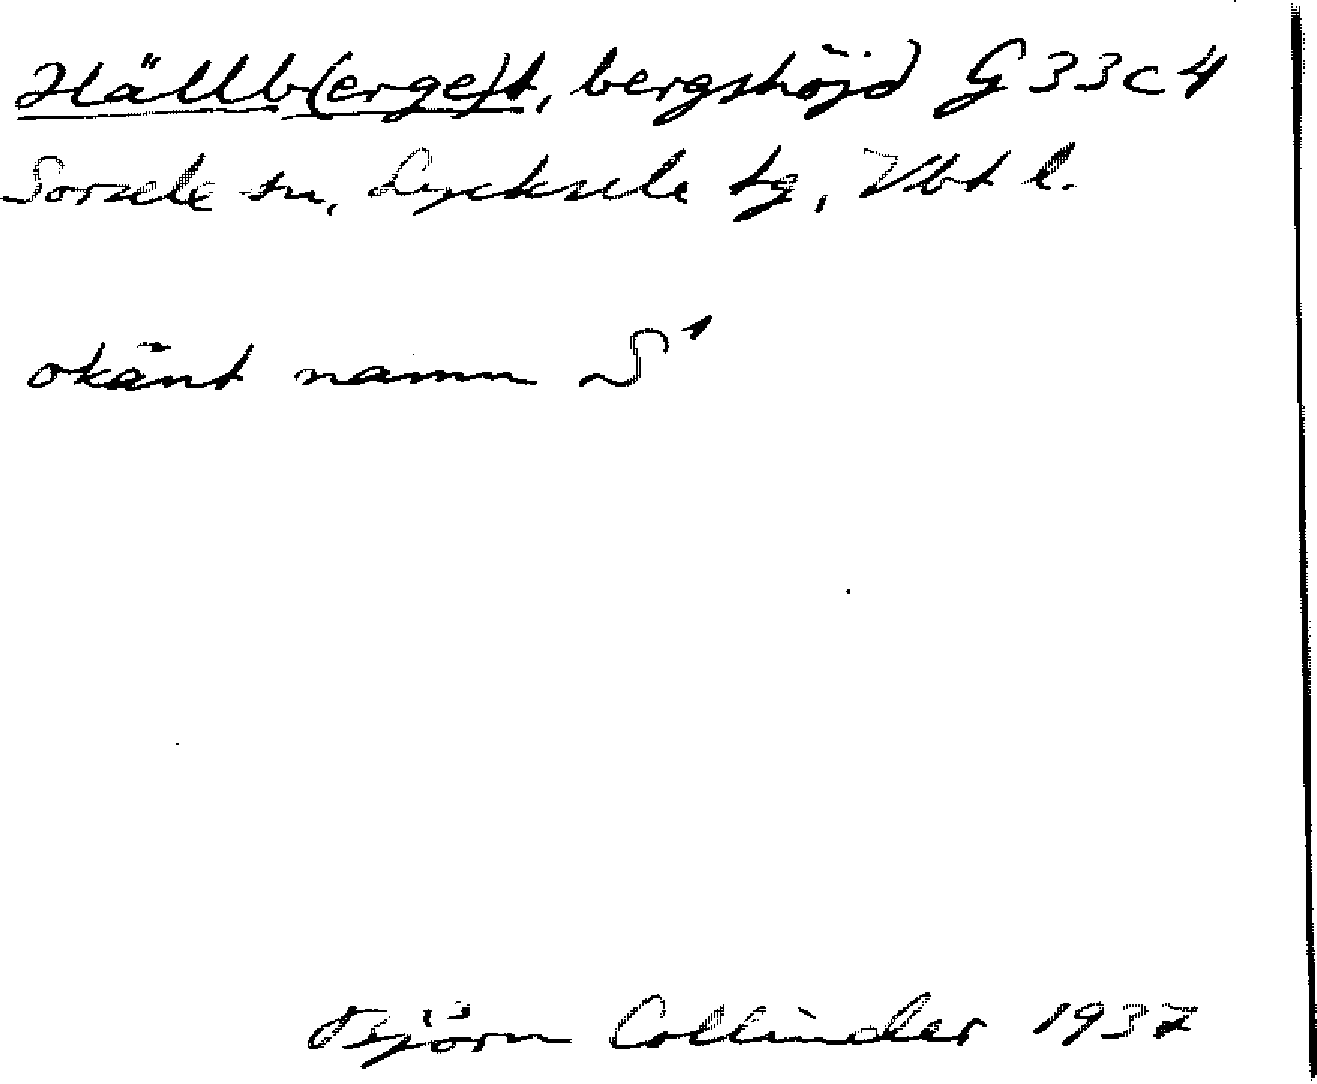 Hällb(erge)t, bergshöjd G33c4
Sorsele sn, Lycksele tg, Vbt l.
okänt namn S¹
Björn Collinder 1937